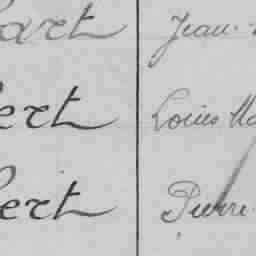 art Jean-
ert Louis Ma
ert Pierre